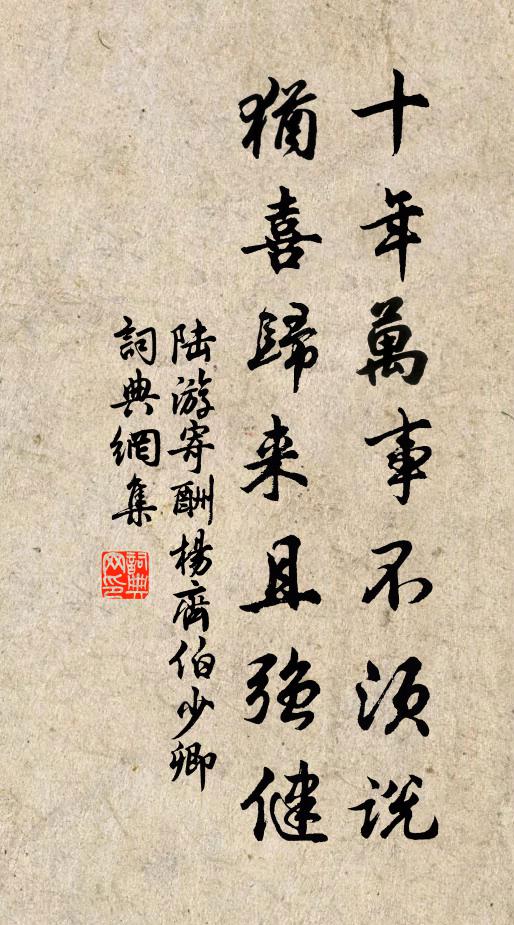 十年萬事不須説
猶喜歸来且強健
陸游寄酬楊齊伯少卿
詞典網集
詞典网印